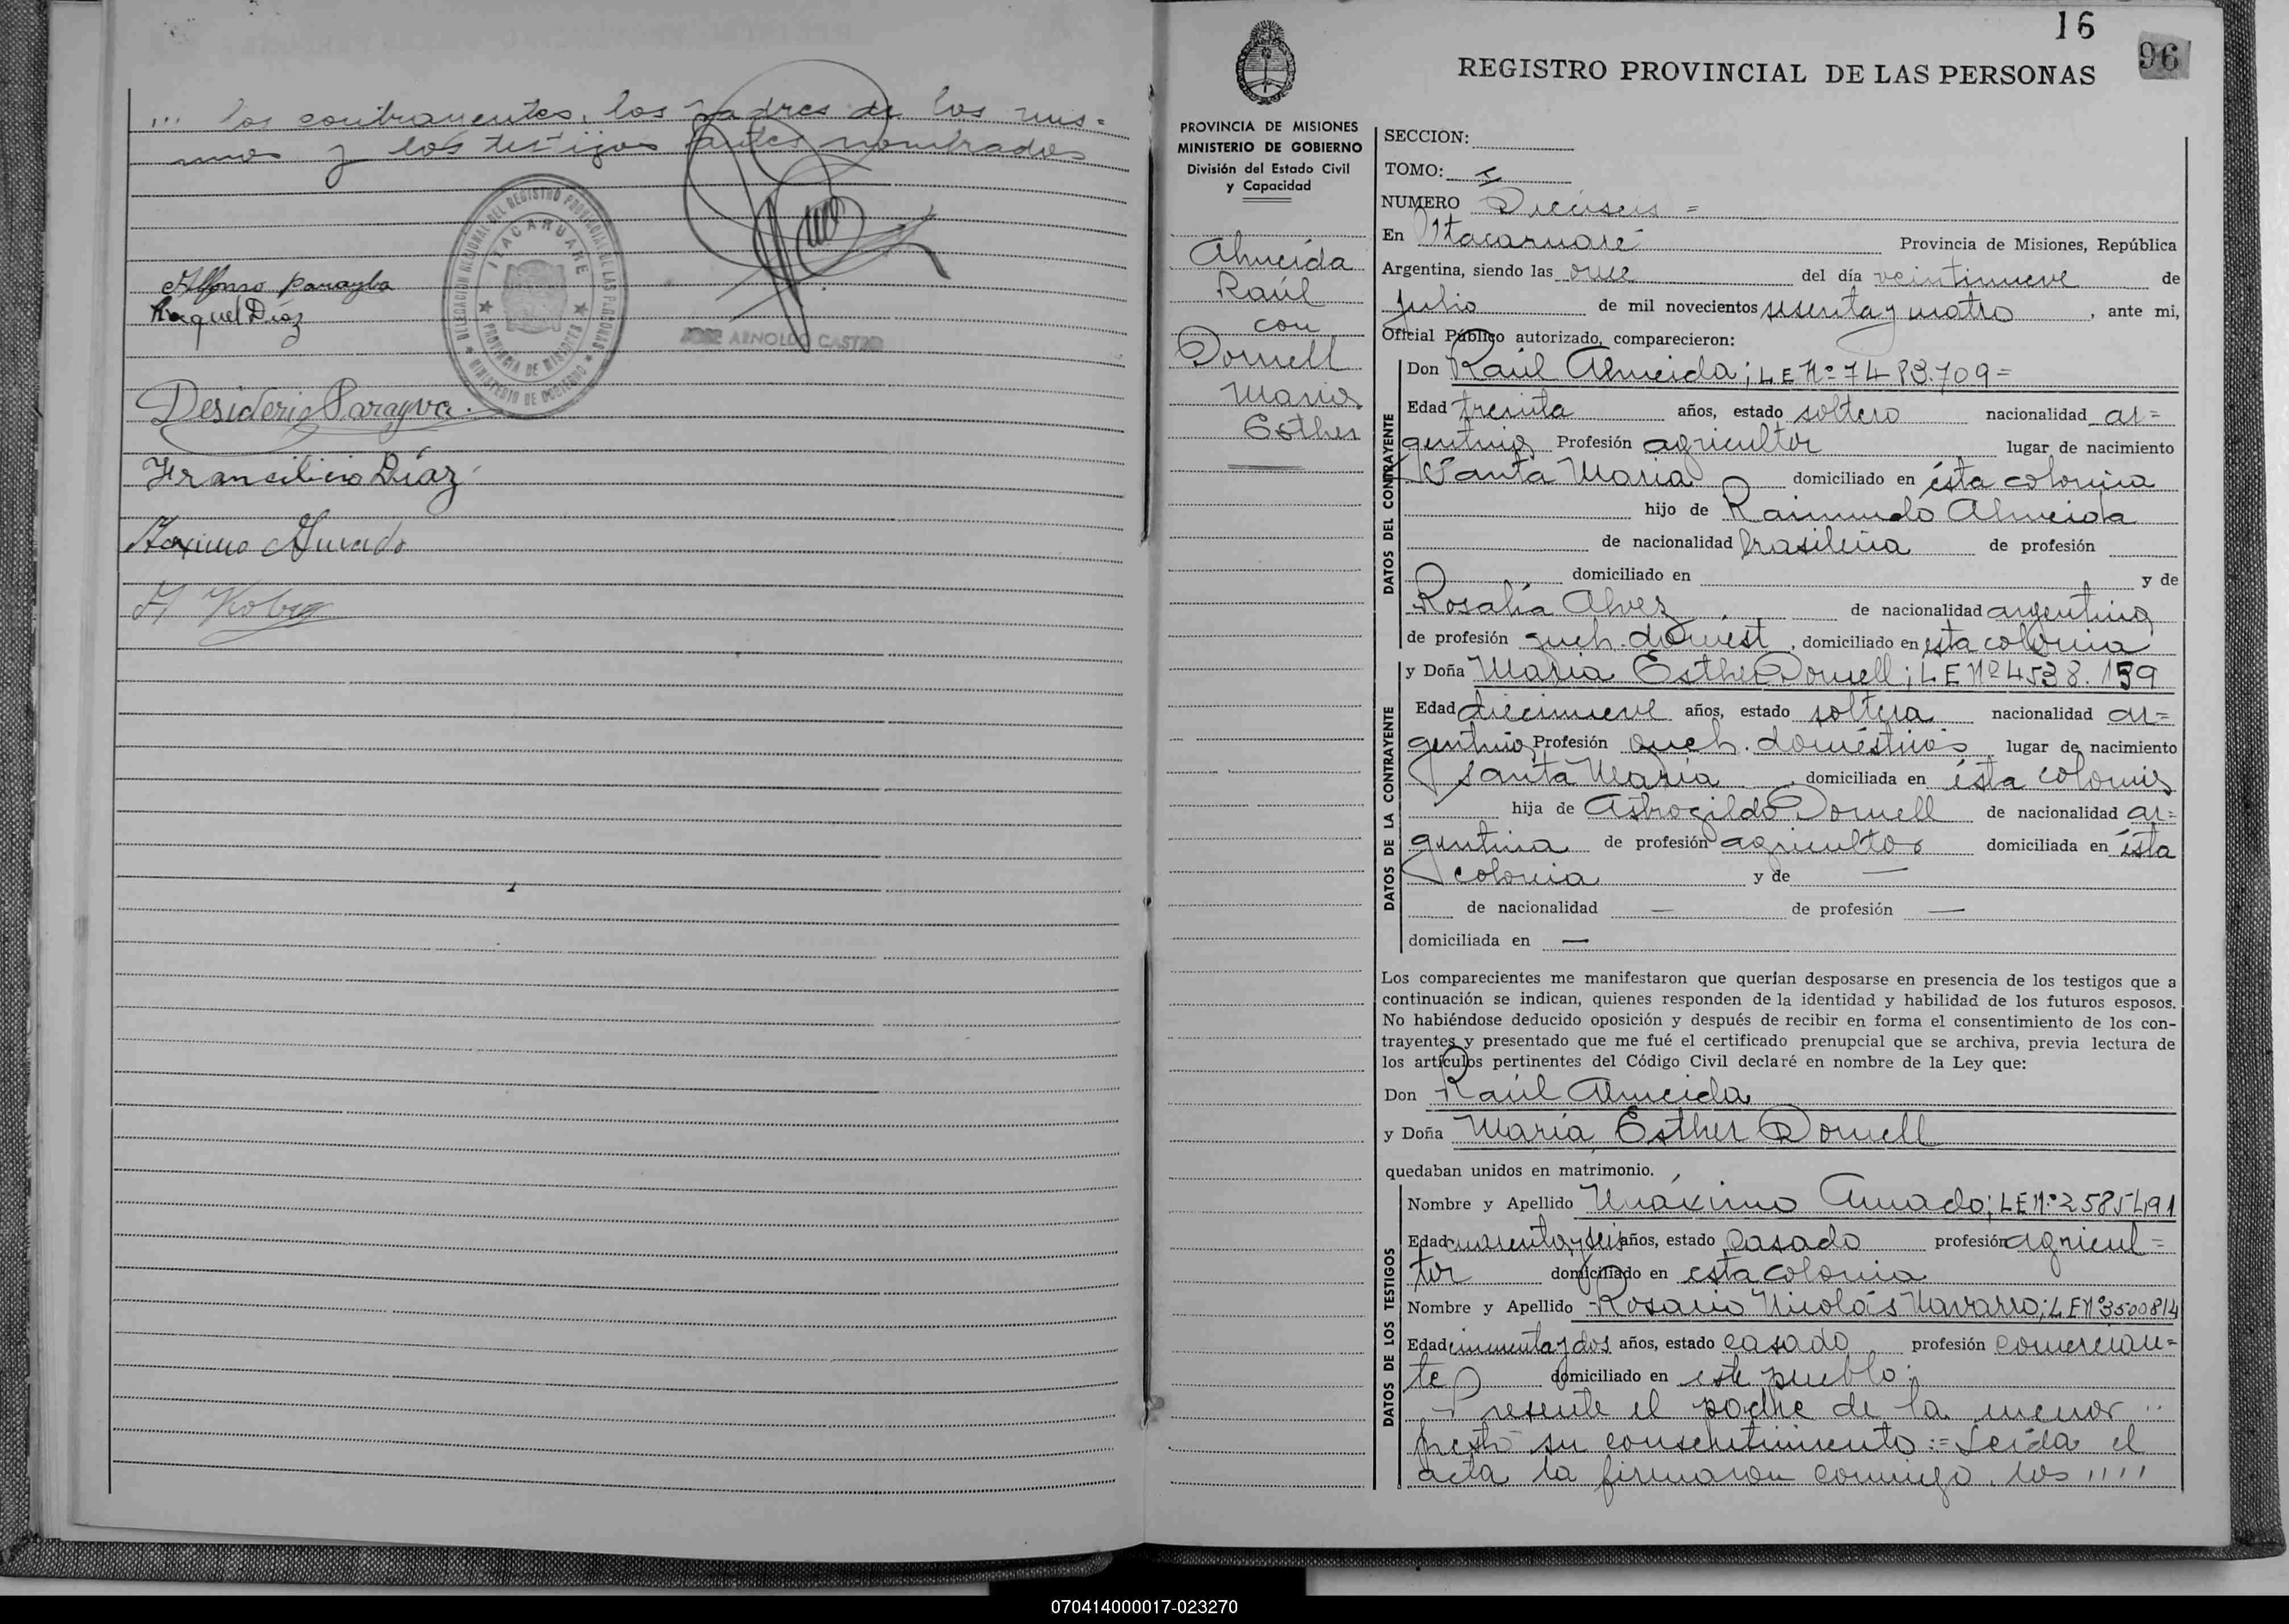 ... los contrayentes, los padres de los mis=
mos y los testigos antes nombrados
Alfonso Parayba
Raquel Díaz
DELEGACION REGIONAL DEL REGISTRO PROVINCIAL DE LAS PERSONAS
ITACARUARE
PROVINCIA DE MISIONES
MINISTERIO DE GOBIERNO
JOSE ARNOLDO CASTRO
Desiderio Parayva.
Fransilicio Díaz
Maximo Amado
16
96
REGISTRO PROVINCIAL DE LAS PERSONAS
PROVINCIA DE MISIONES
MINISTERIO DE GOBIERNO
División del Estado Civil
y Capacidad
Almeida
Raúl
con
Dornell
María
Esther
SECCION:
TOMO:
NUMERO Dieciseis =
En Itacaruaré Provincia de Misiones, República
Argentina, siendo las once del día veintinueve de
julio de mil novecientos sesenta y cuatro, ante mi,
Oficial Público autorizado, comparecieron:
DATOS DEL CONTRAYENTE
Don Raúl Almeida; LE Nº 7483.709=
Edad treinta años, estado soltero nacionalidad ar=
gentina Profesión agricultor lugar de nacimiento
Santa María domiciliado en ésta colonia
hijo de Raimundo Almeida
de nacionalidad brasileña de profesión
domiciliado en y de
Rosalía Alvez de nacionalidad argentina
de profesión queh. domést, domiciliado en esta colonia
DATOS DE LA CONTRAYENTE
y Doña María Esther Dornell; LE Nº 4538.159
Edad diecinueve años, estado soltera nacionalidad ar=
gentina Profesión queh. domésticos lugar de nacimiento
Santa María domiciliada en ésta colonia
hija de Astrogildo Dornell de nacionalidad ar=
gentina de profesión agricultor domiciliada en ésta
colonia y de —
de nacionalidad — de profesión —
domiciliada en —
Los comparecientes me manifestaron que querían desposarse en presencia de los testigos que a
continuación se indican, quienes responden de la identidad y habilidad de los futuros esposos.
No habiéndose deducido oposición y después de recibir en forma el consentimiento de los con-
trayentes y presentado que me fué el certificado prenupcial que se archiva, previa lectura de
los artículos pertinentes del Código Civil declaré en nombre de la Ley que:
Don Raúl Almeida
y Doña María Esther Dornell
quedaban unidos en matrimonio.
DATOS DE LOS TESTIGOS
Nombre y Apellido Máximo Amado; LE Nº 2585491
Edad cuarenta y seis años, estado casado profesión agricul=
tor domiciliado en esta colonia
Nombre y Apellido Rosario Nicolás Navarro; LE Nº 3500814
Edad cincuenta y dos años, estado casado profesión comercian=
te domiciliado en este pueblo.
Presente el padre de la menor ..
prestó su consentimiento := Leída el
acta la firmaron conmigo, los ''''
070414000017-023270